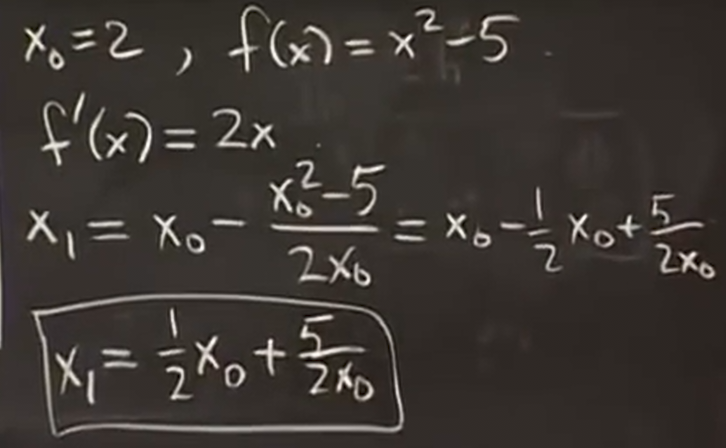 x₀=2 , f(x)=x²-5
f'(x)=2x
x₁ = x₀ - (x₀²-5)/(2x₀) = x₀ - 1/2 x₀ + 5/(2x₀)
x₁ = 1/2 x₀ + 5/(2x₀)